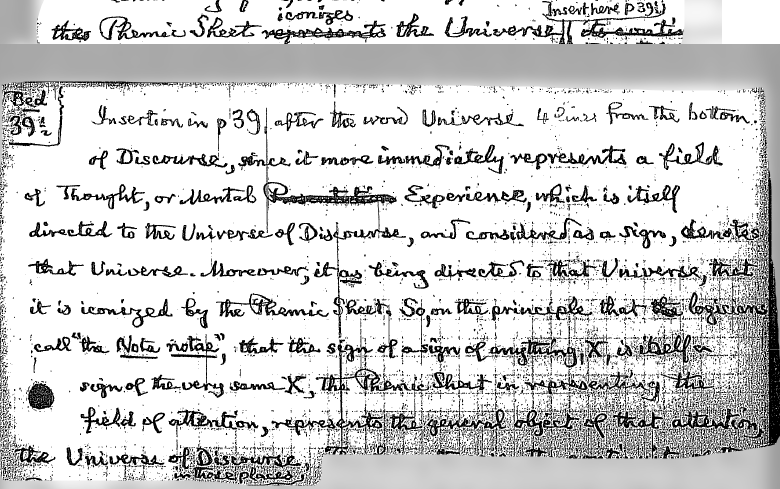 iconizes
Insert here p 39½
the Phemic Sheet represents the Universe
Bed
39½
Insertion in p 39, after the word Universe 4 lines from the bottom.
of Discourse, since it more immediately represents a field
of Thought, or Mental Experience, which is itself
directed to the Universe of Discourse, and considered as a sign, denotes
that Universe. Moreover, it as being directed to that Universe, that
it is iconized by the Phemic Sheet. So, on the principle that logicians
call "the Nota notae", that the sign of a sign of anything, X, is itself a
sign of the very same X, the Phemic Sheet in representing the
field of attention, represents the general object of that attention,
the Universe of Discourse.
in those places,